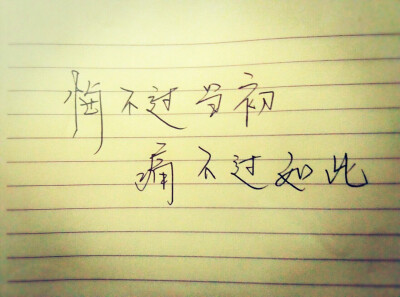 悔不过当初
痛不过如此